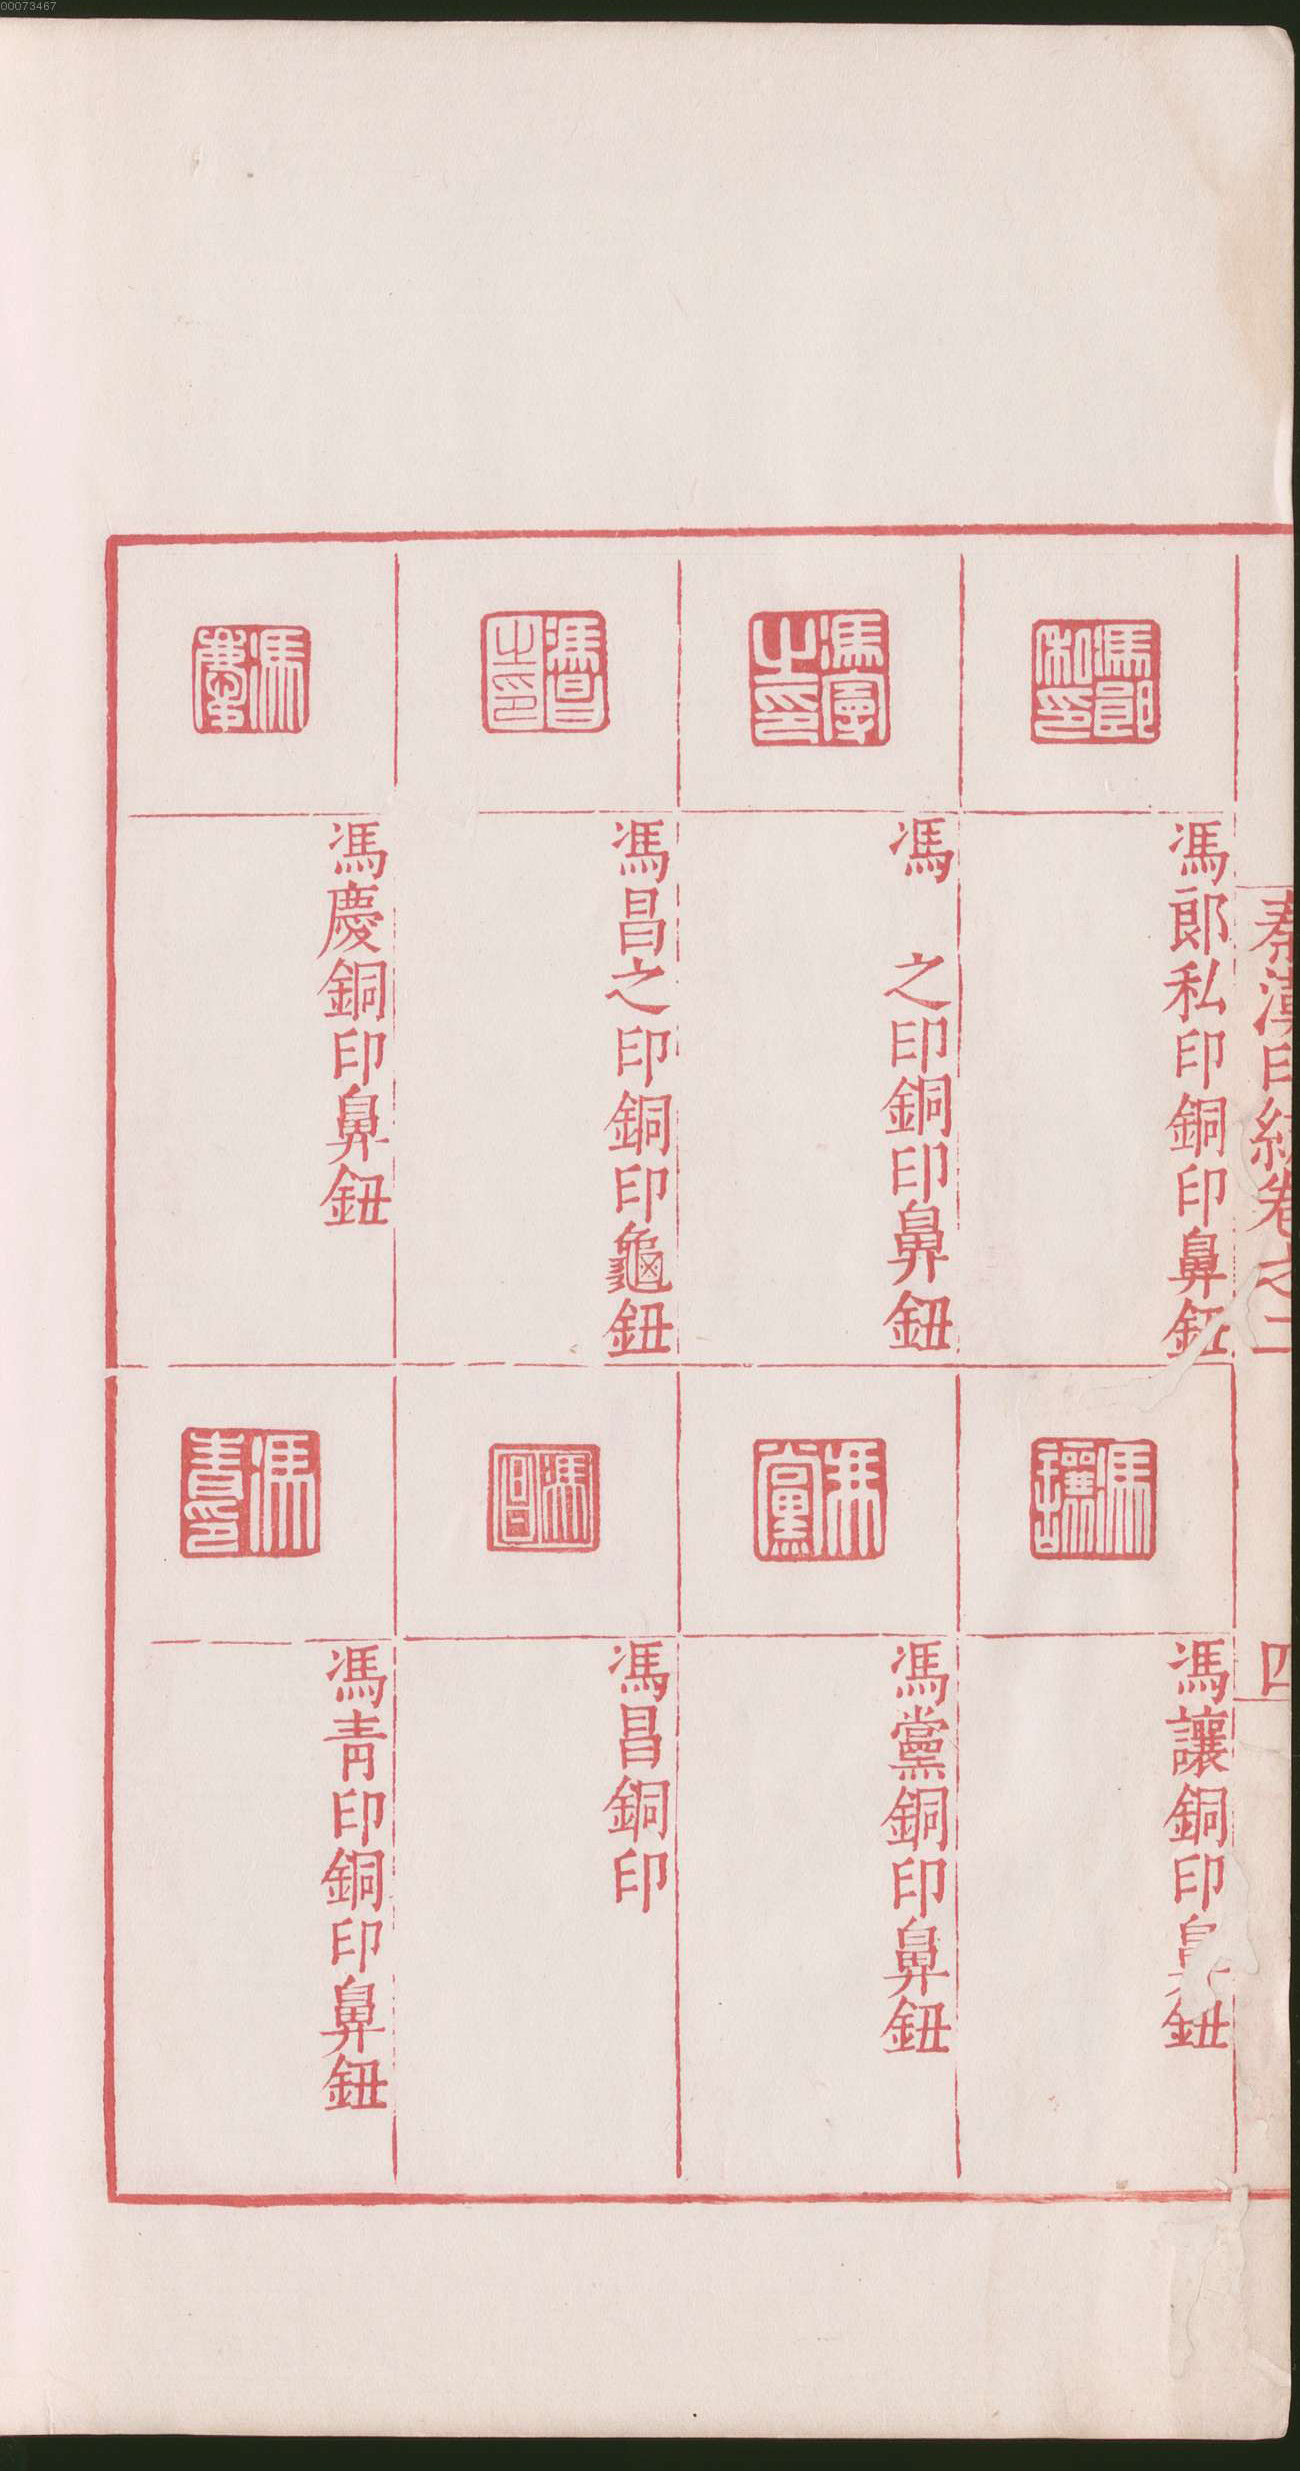 00073467
秦漢印統卷之二
四
馮郎私印
馮郎私印銅印鼻鈕
馮 之印
馮 之印銅印鼻鈕
馮昌之印
馮昌之印銅印龜鈕
馮慶
馮慶銅印鼻鈕
馮讓
馮讓銅印鼻鈕
馮黨
馮黨銅印鼻鈕
馮昌
馮昌銅印
馮青印
馮青印銅印鼻鈕